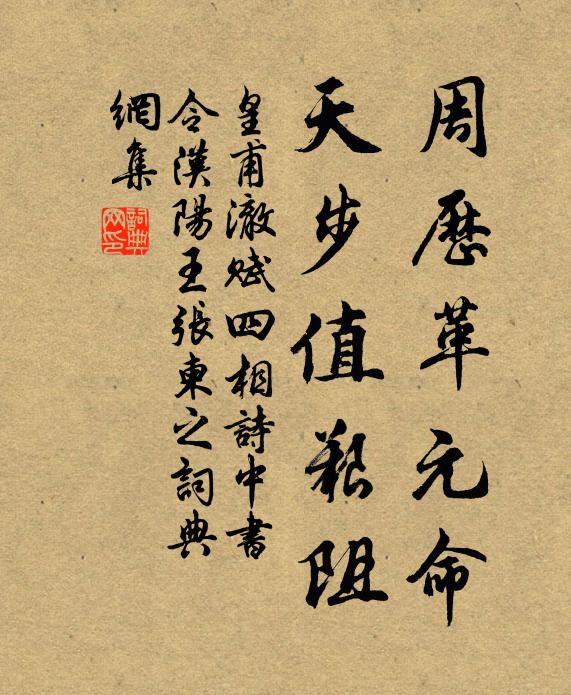 周歷革元命
天步值艱阻
皇甫澈賦四相詩中書
令漢陽王張東之詞典
網集
詞典
网印